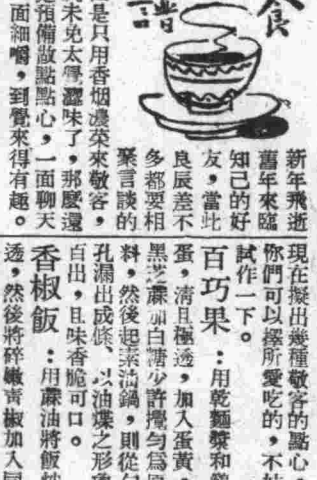 食
譜
言
新年飛逝
舊年來臨
知己的好
友，當此
良辰差不
多都要相
聚言談的
是只用香烟濃茶來敬客，
未免太覺澀味了，那麼還
預備啟點點心，一面聊天
面細嚼，到覺來得有趣。
現在擬出幾種敬客的點心，
你們可以擇所愛吃的，不妨
試作一下。
百巧果：用乾麵漿和鷄
蛋，清且極透，加入蛋黃，
黑芝蔴加白糖少許攪勻爲原
料，然後起素油鍋，則從勺
孔漏出成條、以油煠之形
百出，且味香脆可口。
香椒飯：用蔴油將飯炒
透，然後將碎嫩靑椒加入同